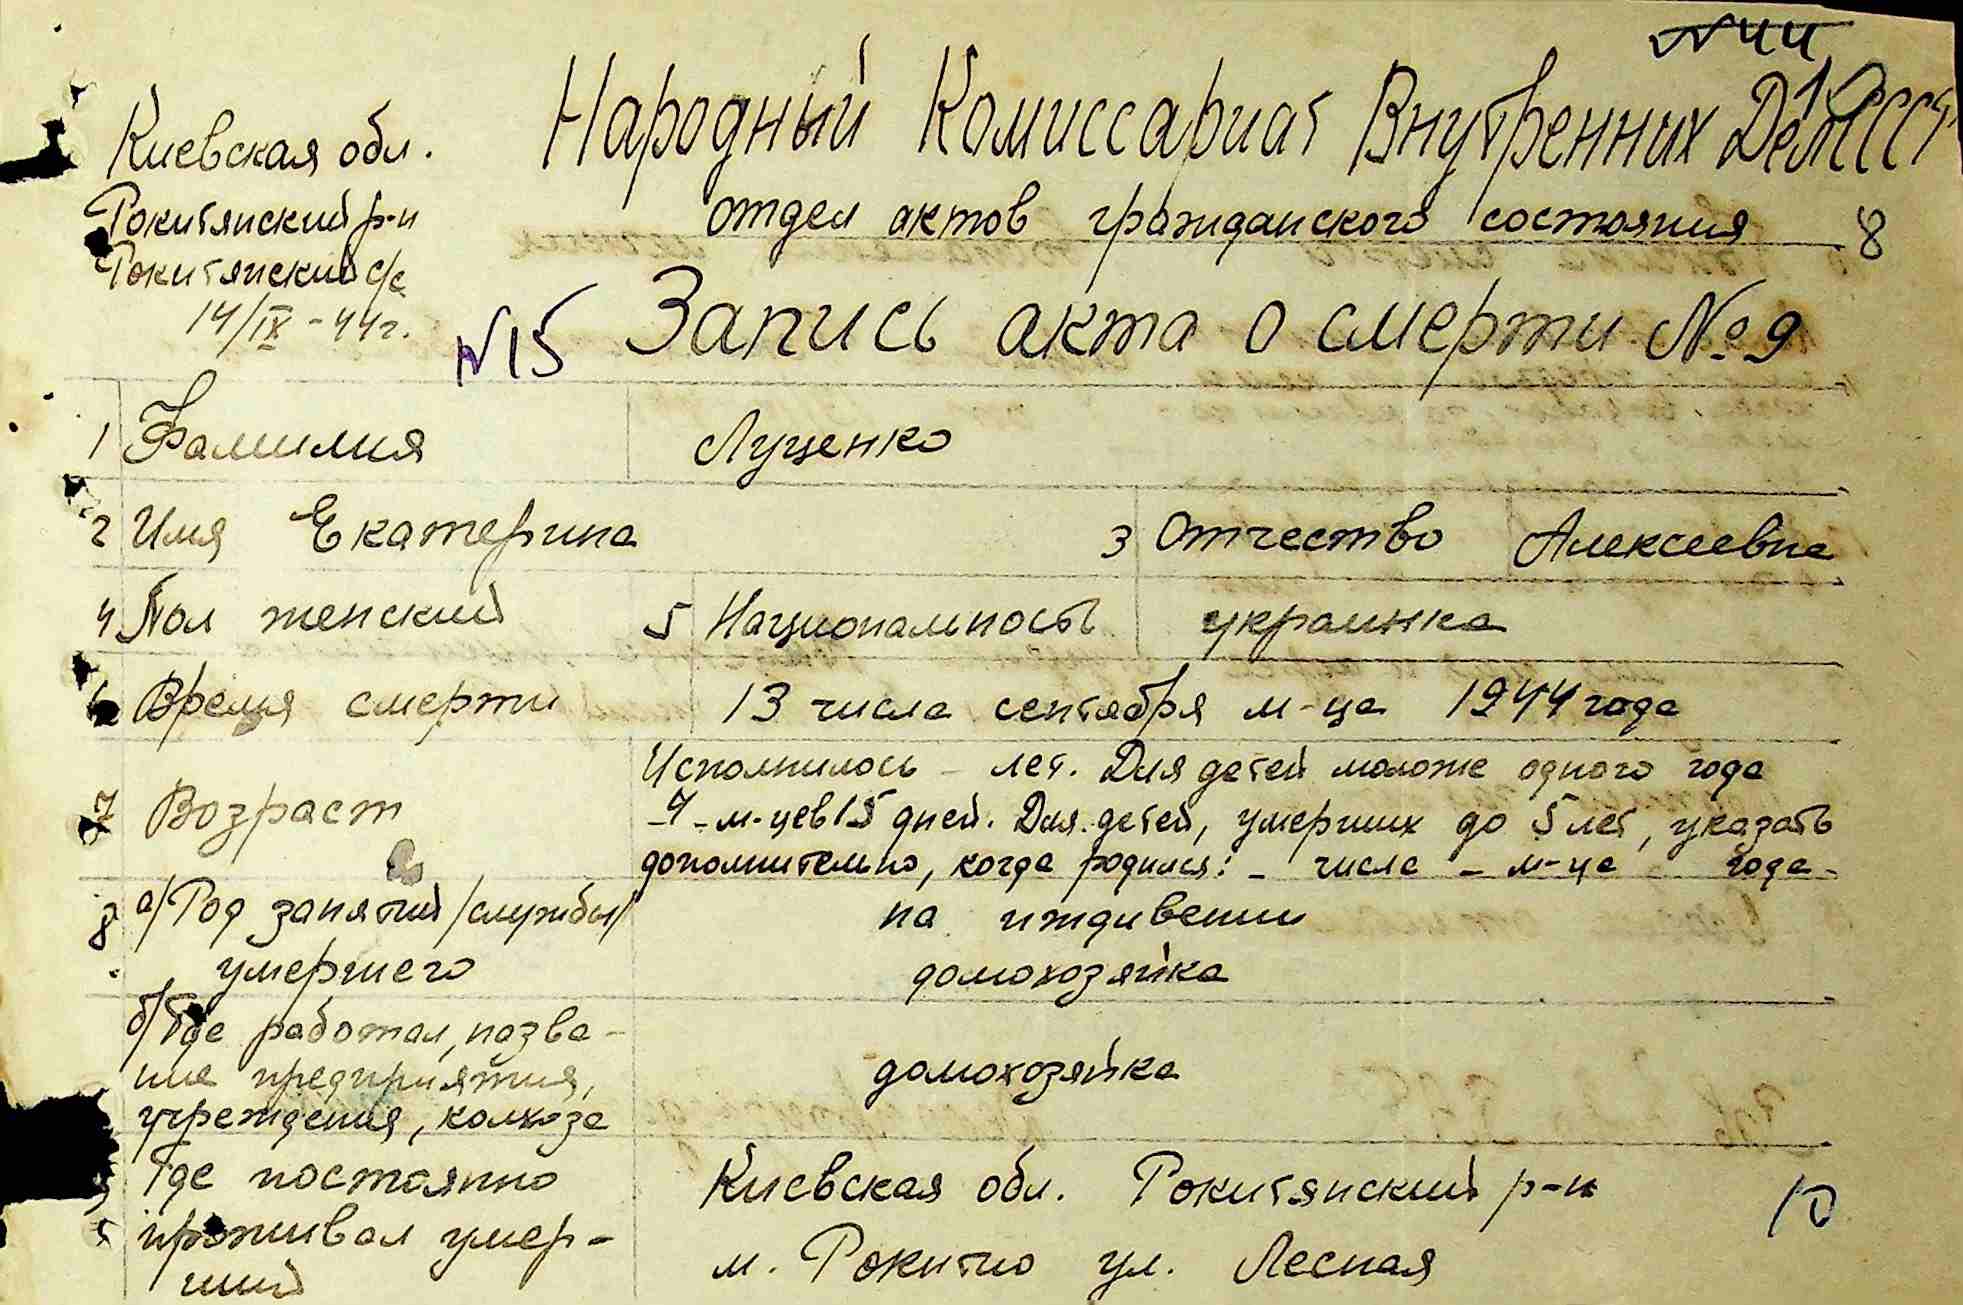 №44
Киевская обл.
Рокитянский р-н
Рокитянский с/с
14/IX-44г.
Народный Комиссариат Внутренних Дел СССР
отдел актов гражданского состояния 8
№15 Запись акта о смерти №9
1 Фамилия Луценко
2 Имя Екатерина 3 Отчество Алексеевна
4 Пол женский 5 Национальность украинка
6 Время смерти 13 числа сентября м-ца 1944 года
7 Возраст
Исполнилось - лет. Для детей моложе одного года
-4-м-цев 15 дней. Для детей, умерших до 5 лет, указать
дополнительно, когда родился: - числа - м-ца - года -
8 а/ Род занятий /службы/ на иждивении
умершего домохозяйка
б/ Где работал, назва-
ние предприятия, домохозяйка
учреждения, колхоза
9 Где постоянно Киевская обл. Рокитянский р-н 10
проживал умер- м. Рокитно ул. Лесная
ший